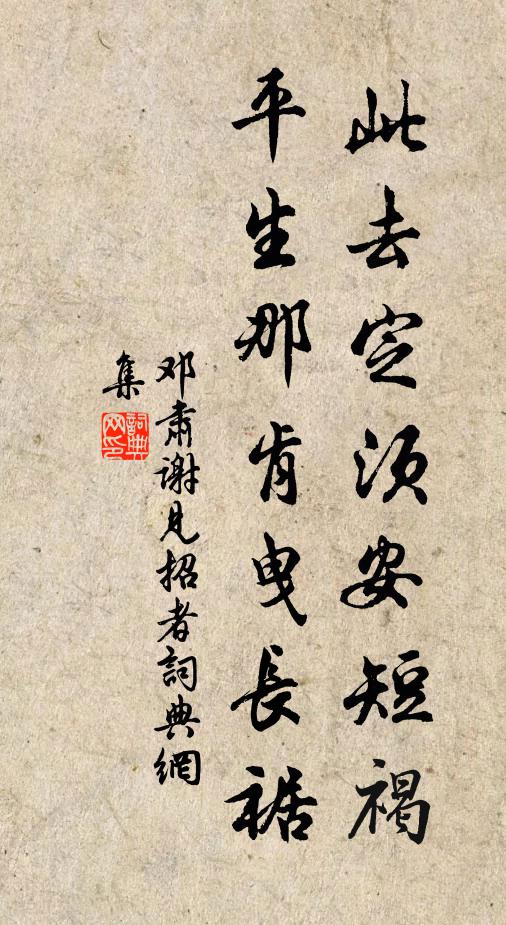 此去定须安短褐
平生那肯曳長裾
邓肃谢見招者詞典網
集
詞典网印